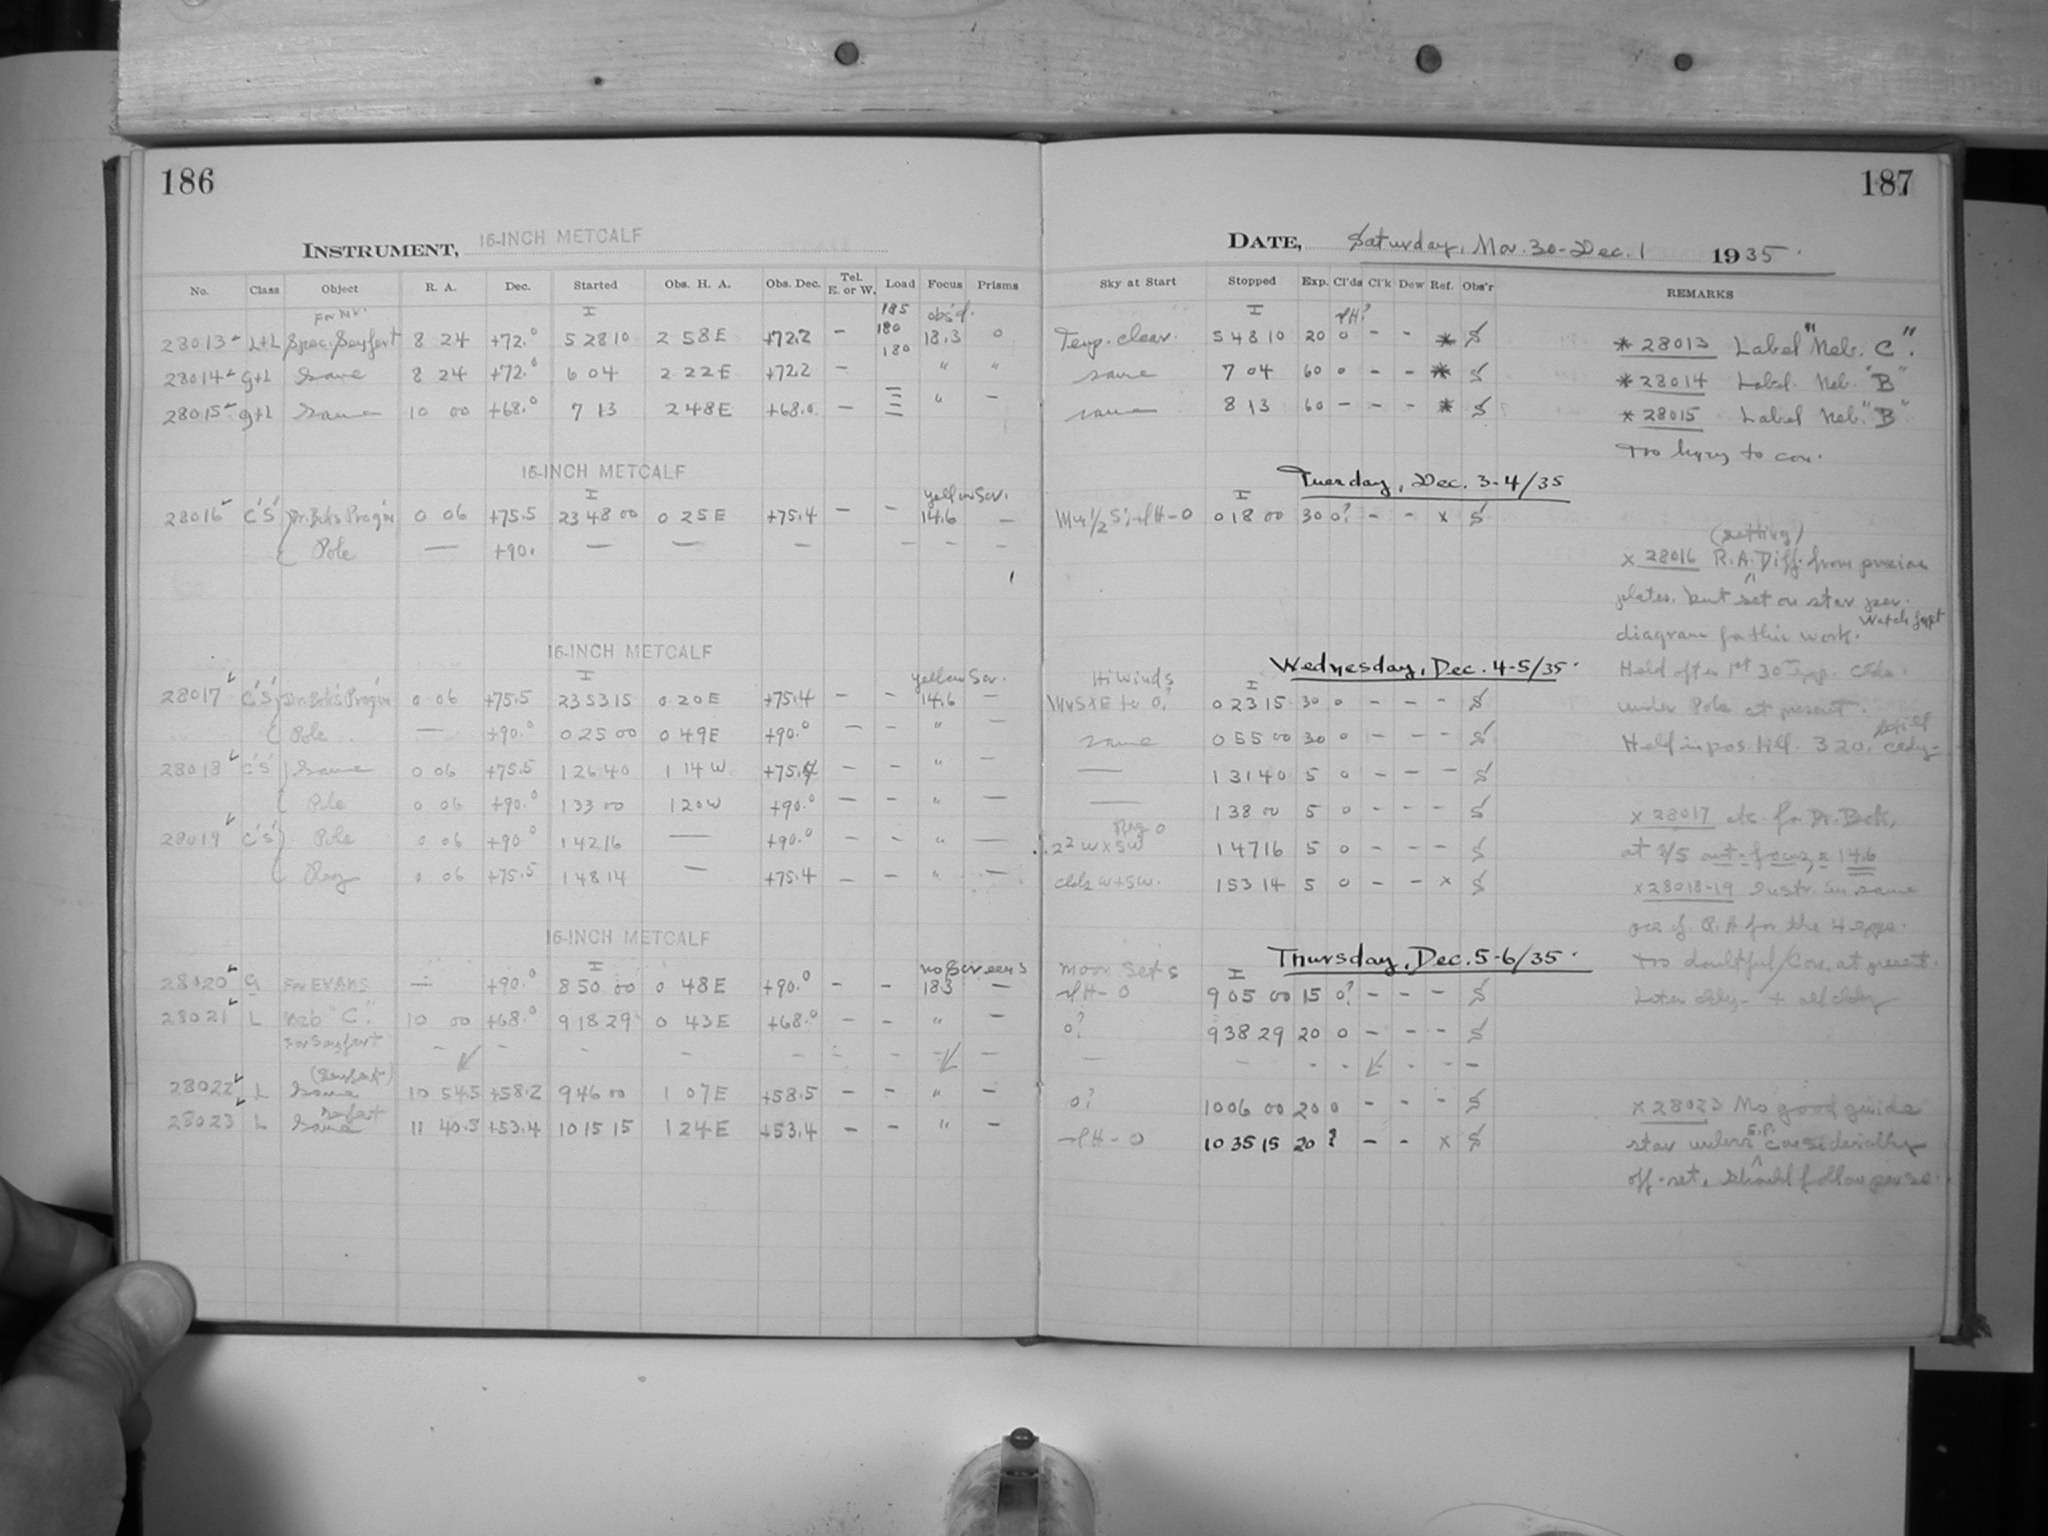 186
INSTRUMENT, 16-INCH METCALF
No. Class Object R. A. Dec. Started Obs. H. A. Obs. Dec. Tel. E. or W. Load Focus Prisms
For Mr. I 185 obs'd.
28013 L+L Spec. Seyfert 8 24 +72.0 5 28 10 2 58 E +72.2 - 180 18.3 0
180
28014 g+L Same 8 24 +72.0 6 04 2 22 E +72.2 - " "
28015 g+L Same 10 00 +68.0 7 13 2 48 E +68.0 - " -
16-INCH METCALF
I yellow Scr.
28016 C'S' Dr. Bok's Prog'm 0 06 +75.5 23 48 00 0 25 E +75.4 - - 14.6 -
Pole - +90. - - - - - -
16-INCH METCALF
I yellow Scr.
28017 C'S' Dr. Bok's Prog'm 0 06 +75.5 23 53 15 0 20 E +75.4 - - 14.6 -
Pole - +90.0 0 25 00 0 49 E +90.0 - - " -
28018 C'S' Same 0 06 +75.5 1 26 40 1 14 W +75.4 - - " -
Pole 0 06 +90.0 1 33 00 1 20 W +90.0 - - " -
28019 C'S' Pole 0 06 +90.0 1 42 16 - +90.0 - - " -
Reg 0 06 +75.5 1 48 14 - +75.4 - - " -
16-INCH METCALF
I no Screens
28020 G For EVANS - +90.0 8 50 00 0 48 E +90.0 - - 18.3 -
28021 L Neb "C". 10 00 +68.0 9 18 29 0 43 E +68.0 - - " -
For Seyfert - - - - - - - -
(Seyfert)
28022 L Same 10 54.5 +58.2 9 46 00 1 07 E +58.5 - - " -
Seyfert
28023 L Same 11 40.8 +53.4 10 15 15 1 24 E +53.4 - - " -
187
DATE, Saturday, Nov. 30-Dec. 1 1935.
Sky at Start Stopped Exp. Cl'ds Cl'k Dew Ref. Obs'r REMARKS
I
Temp. clear. 5 48 10 20 0 - - * S * 28013 Label "Neb. C".
same 7 04 60 0 - - * S * 28014 Label. Neb. "B"
same 8 13 60 - - - * S * 28015 Label Neb. "B"
Too hazy to con.
Tuesday, Dec. 3-4/35
I
0 18 00 30 0? - - x S
(setting)
x 28016 R.A. Diff. from previous
plates, but set on star per.
diagram for this work.
Wednesday, Dec. 4-5/35.
Hi winds I Held after 1st 30m exp. Clds.
0 23 15 30 0 - - - S under Pole at present.
same 0 55 00 30 0 - - - S Held in pos. till 3 20, still cldy-
- 1 31 40 5 0 - - - S
- 1 38 00 5 0 - - - S x 28017 etc. for Dr. Bok,
1 47 16 5 0 - - - S
clds W+SW. 1 53 14 5 0 - - x S x 28018-19 Instr. in same
pos. of R.A for the 4 exps.
Thursday, Dec. 5-6/35.
Too doubtful/Con. at present.
Moon Sets I
-PH-0 9 05 00 15 0? - - - S
0? 9 38 29 20 0 - - - S
- - - - - - -
0? 10 06 00 20 0 - - - S x 28023 No good guide
-PH-0 10 35 15 20 ? - - x S star unless S.P. considerably
off-set. Should follow per se.